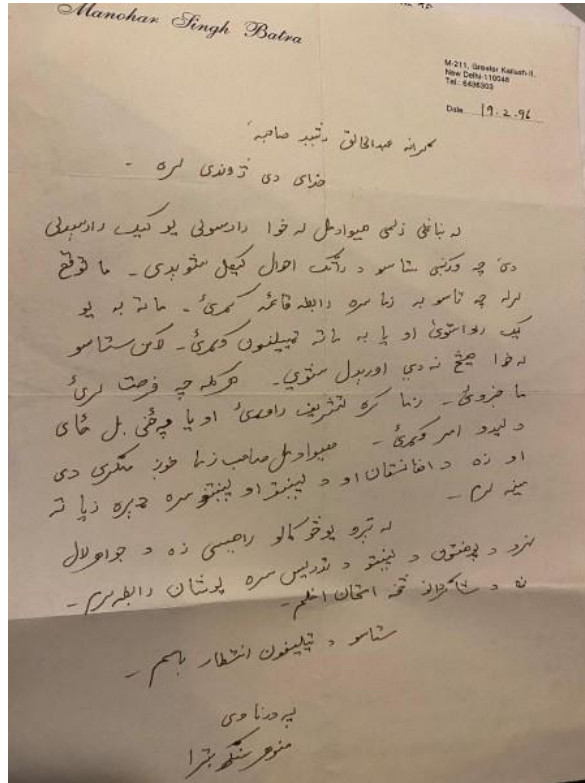 Manohar Singh Batra
M-211, Greater Kailash-II,
New Delhi-110048
Tel.: 6436303
Date 19.2.96
عبدالخالق رشید صاحبه
خدای دی ژوندی لره -
له ښاغلی زلمی هیوادمل له خوا رادسولی یو کیک رارسیدلی
دی چه ورکښی ستاسو د راتګ احوال کیل شوبدی - ما توقع
لرله چه تاسو به زما سره رابطه قائمه کړئ - ماته به یو
کیک راواستوئ او یا به ماته ټیلفون وکړئ - لاکن ستاسو
له خوا هیڅ نه دی اوریدل شوی - هرکله چه فرصت لرئ
ما خبروئ - زما کره تشریف راوړئ او یا چرته بل ځای
د لیدو امر وکړئ - هیوادمل صاحب زما خوږ ملګری دی
او زه د افغانستان او د پښتو او پښتنو سره ډیره زیاته
مینه لرم -
له تیرو یوڅو کالو راهیسی زه د جواهرلال
نهرو د پوهنتون د پښتو د تدریس سره رابطه لرم -
د شاګردانو څخه امتحان اخلم -
ستاسو د ټیلیفون انتظار باسم -
په درناوی
منوهر سنګهـ بترا